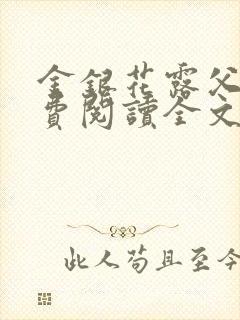 金銀花露父
費閱讀全文
此人苟且至今